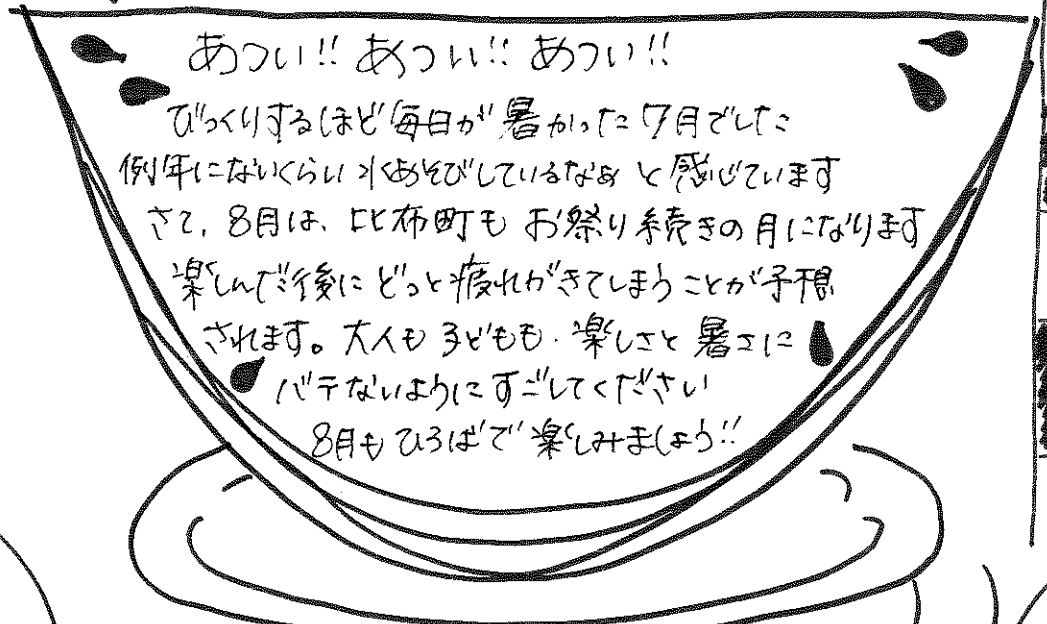 あつい!! あつい!! あつい!!
びっくりするほど毎日が暑かった7月でした
例年にないくらい水あそびしているなぁ と感じています
さて、8月は、比布町も お祭り続きの月になります
楽しんだ後に どっと疲れがきてしまうことが予想
されます。大人も 子どもも、楽しさと 暑さに
バテないようにすごしてください
8月も ひろばで 楽しみましょう!!